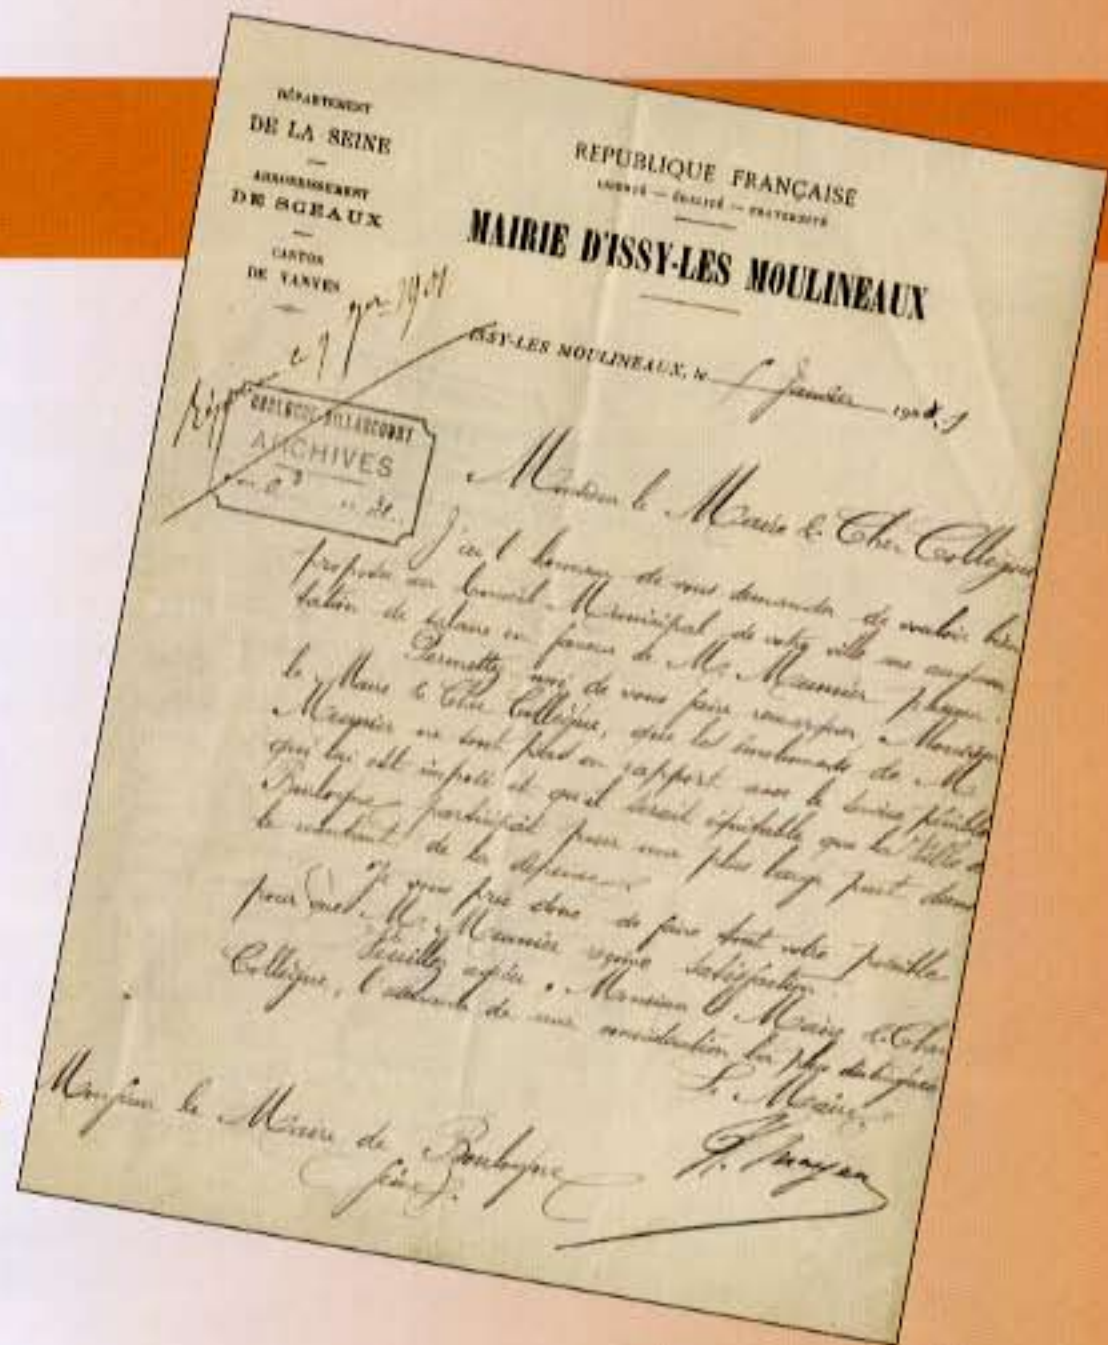 DÉPARTEMENT
DE LA SEINE
ARRONDISSEMENT
DE SCEAUX
CANTON
DE VANVES
RÉPUBLIQUE FRANÇAISE
LIBERTÉ — ÉGALITÉ — FRATERNITÉ
MAIRIE D'ISSY-LES MOULINEAUX
ISSY-LES MOULINEAUX, le Janvier 190
1901
BOULOGNE-BILLANCOURT
ARCHIVES
Monsieur le Maire & Cher Collègue
J'ai l'honneur de vous demander de vouloir bien
proposer au Conseil Municipal de votre ville une augmen
tation de salaire en faveur de M. Meunier
Permettez moi de vous faire remarquer, Monsieur
le Maire & Cher Collègue, que les émoluments de M.
Meunier ne sont pas en rapport avec le service pénible
qui lui est imposé et qu'il serait équitable que la Ville de
Boulogne participât pour une plus large part dans
le montant de la dépense.
Je vous prie donc de faire tout votre possible
pour que M. Meunier reçoive satisfaction.
Veuillez agréer, Monsieur le Maire & Cher
Collègue, l'assurance de ma considération la plus distinguée
Le Maire,
Monsieur le Maire de Boulogne